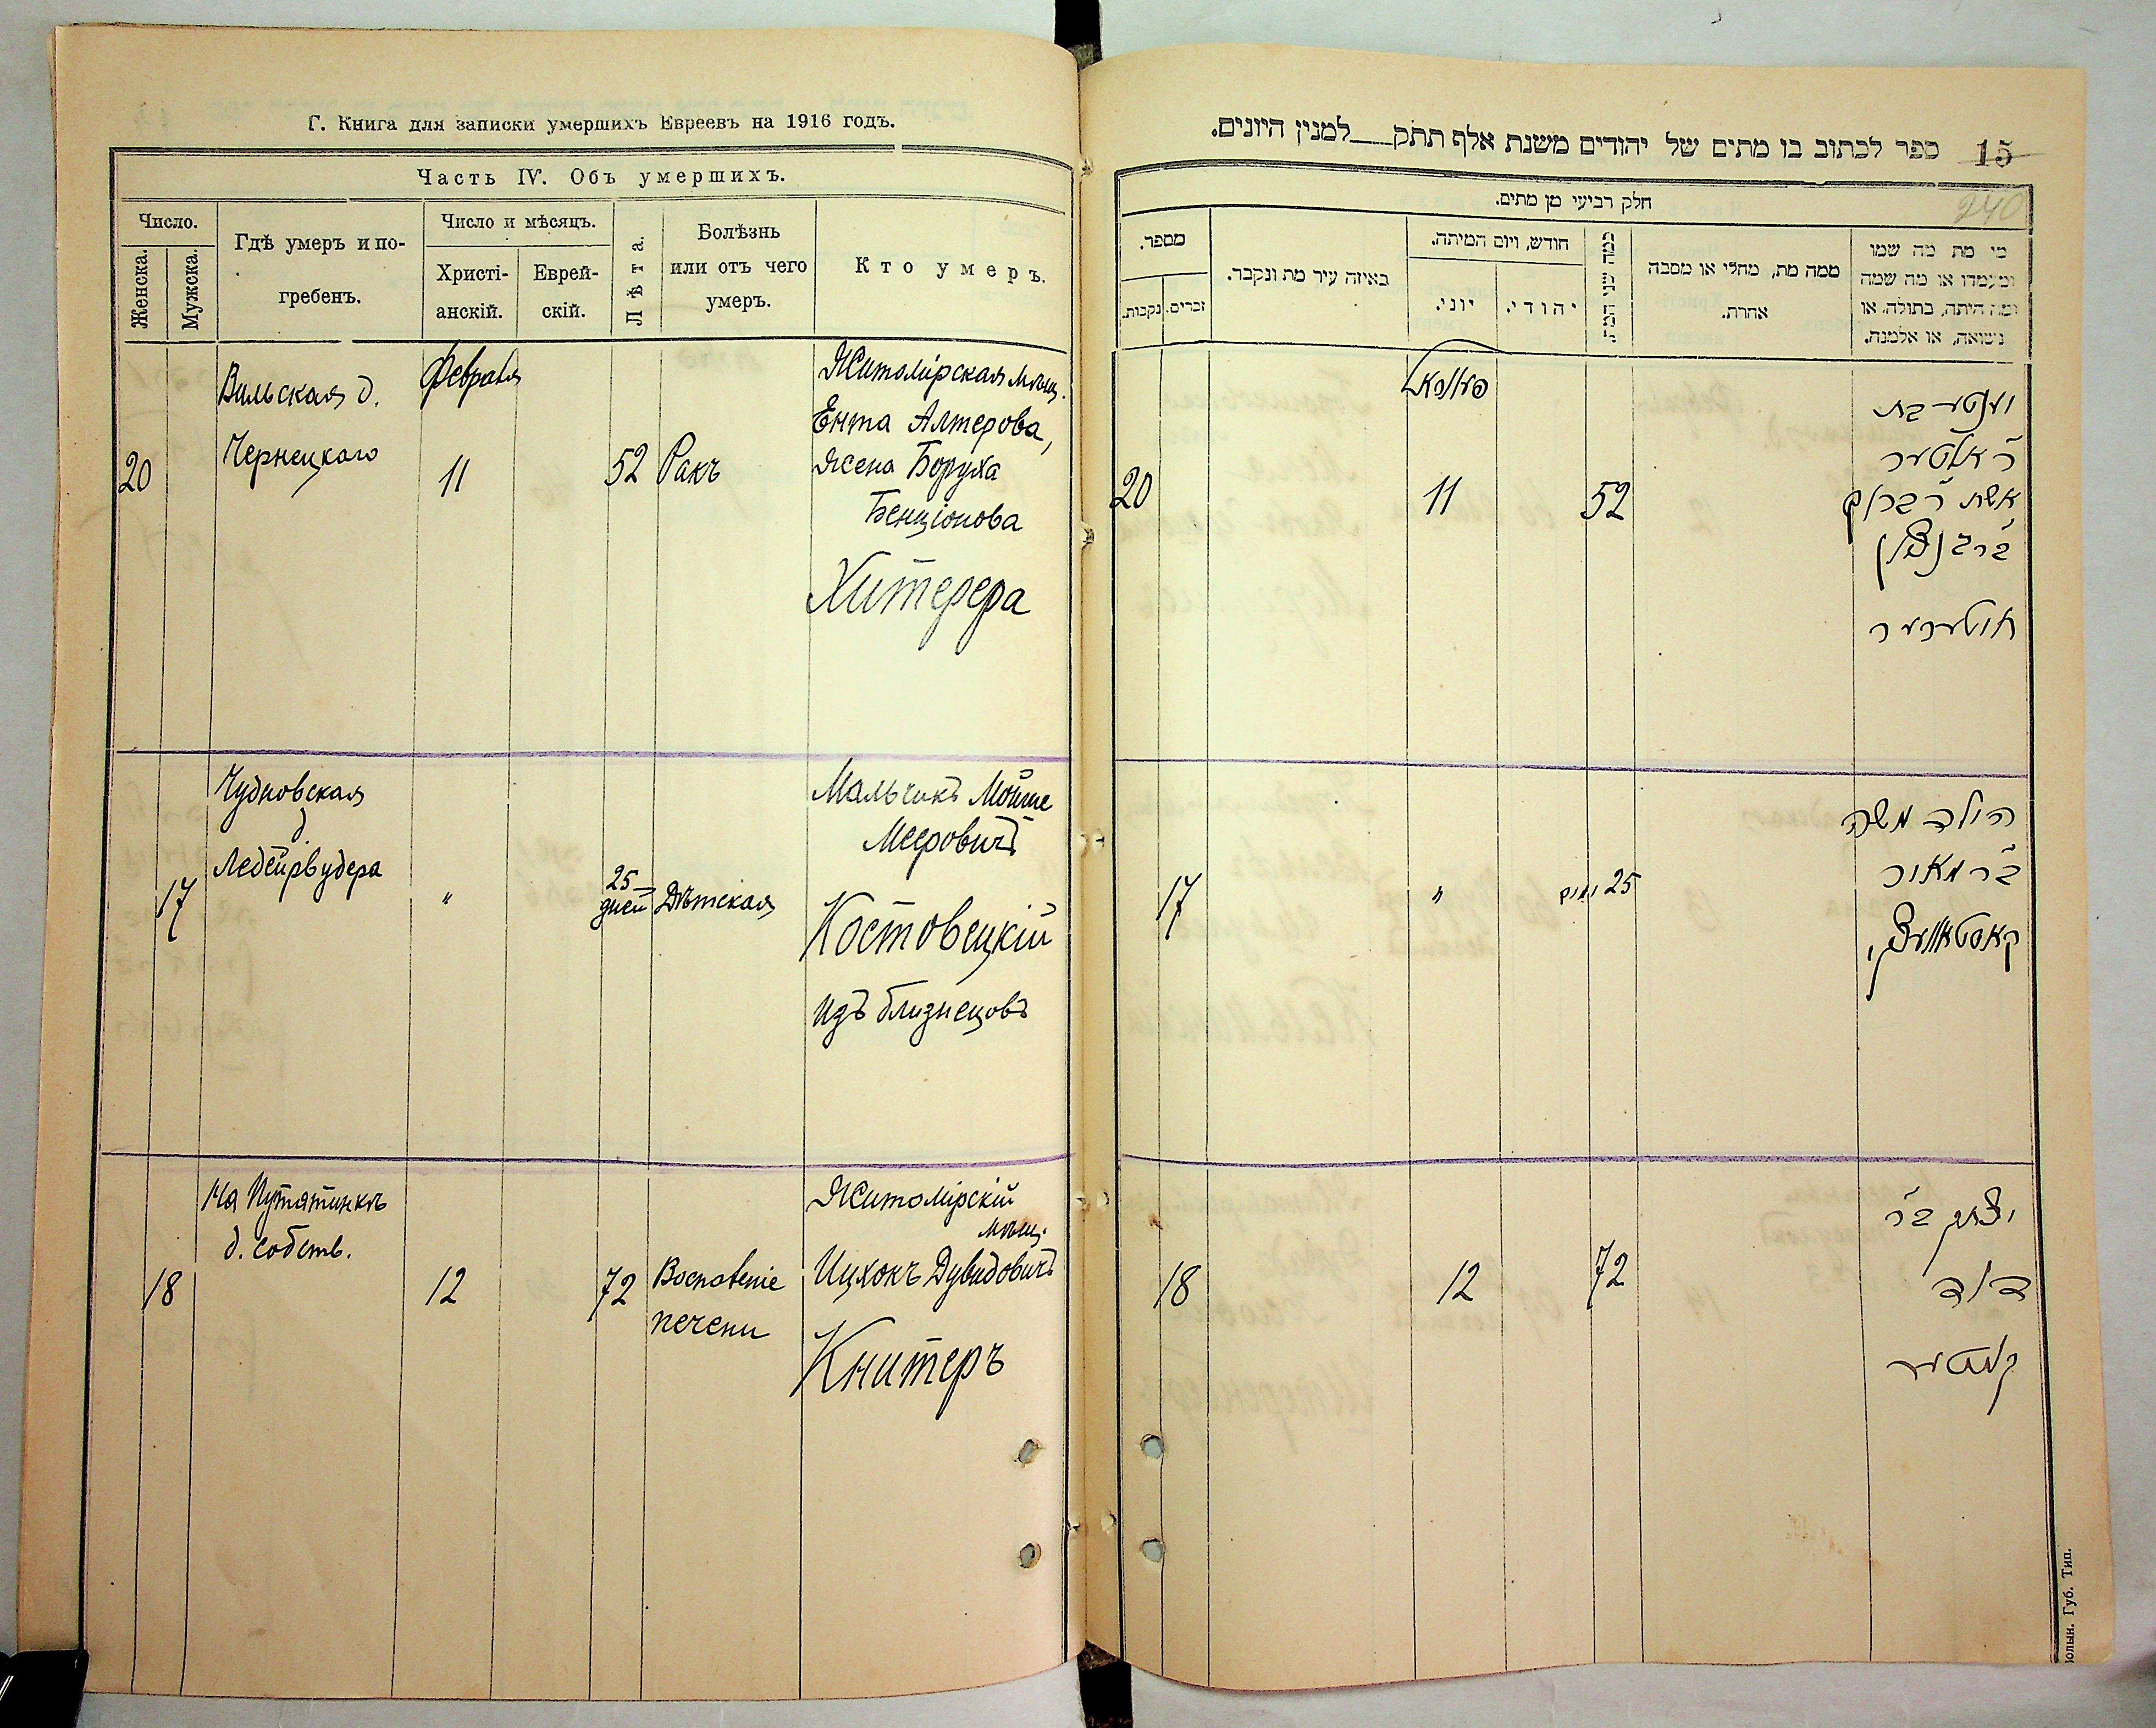 Г. Книга для записки умершихъ Евреевъ на 1916 годъ.
Часть IV. Объ умершихъ.
Число.
Женска.
Мужска.
Гдѣ умеръ и по-
гребенъ.
Число и мѣсяцъ.
Христі-
анскій.
Еврей-
скій.
Лѣта.
Болѣзнь
или отъ чего
умеръ.
Кто умеръ.
20
Вильская д.
Чернецкаго
Февраля
11
52
Ракъ
Житомірская мѣщ.
Ента Алтерова,
жена Боруха
Бенціонова
Хитерера
17
Чудновская
д
Ледейрвудера
"
25
дней
Дѣтская
Мальчикъ Мойше
Мееровичъ
Костовецкій
изъ близнецовъ
18
На Путятинкѣ
д. собств.
12
72
Воспаленіе
печени
Житомірскій
мѣщ.
Ицхокъ Дувидовичъ
Книтеръ
15
ספר לכתוב בו מתים של יהודים משנת אלף תתק למנין היונים.
240
חלק רביעי מן מתים.
מספר.
נקבות.
זכרים.
באיזה עיר מת ונקבר.
חודש, ויום המיתה.
יוני.
יהודי.
כמה שני המת
ממה מת, מחלי או מסבה
אחרת.
מי מת מה שמו
ומעמדו או מה שמה
ומה היתה, בתולה, או
נשואה, או אלמנה.
20
11
52
יענטע בת
ר' אלטער
אשת ר' ברוך
בר' בן ציון
חיטערער
17
"
25 ימים
הילד משה
בר' מאיר
קאסטאוועצקי
18
12
72
יצחק בר'
דוד
קניטער
Волын. Губ. Тип.